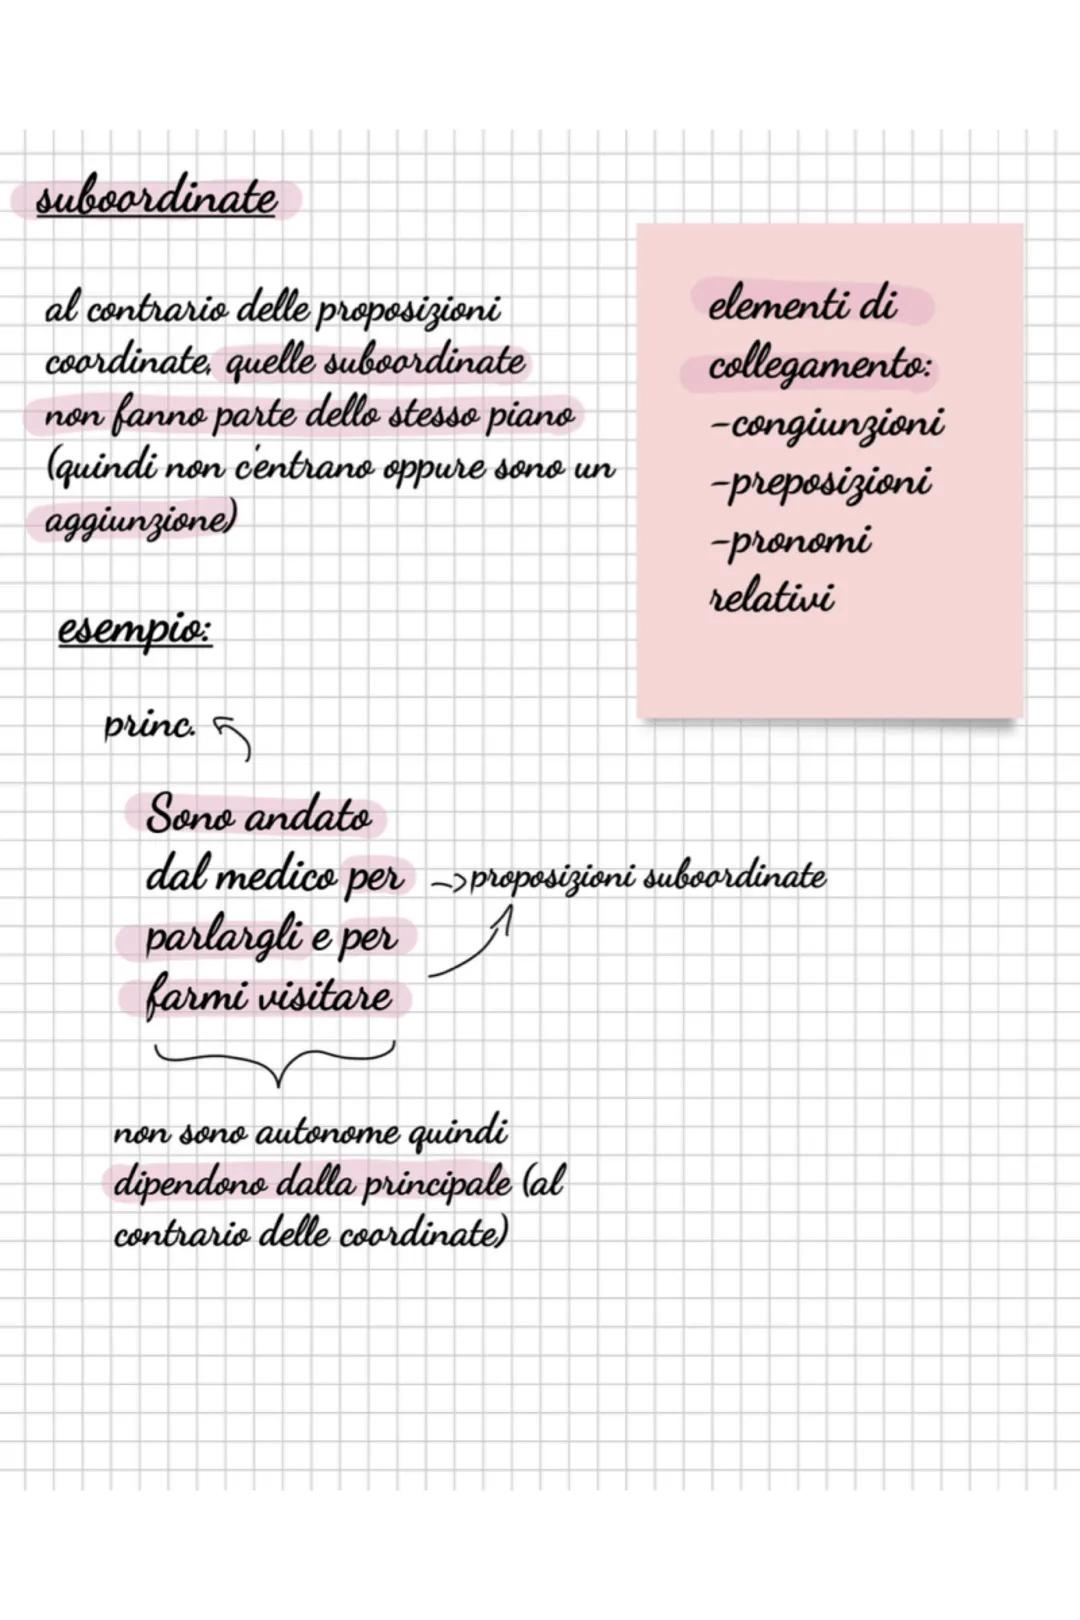 suboordinate
al contrario delle proposizioni
coordinate, quelle suboordinate
non fanno parte dello stesso piano
(quindi non c'entrano oppure sono un
aggiunzione)
elementi di
collegamento:
-congiunzioni
-preposizioni
-pronomi
relativi
esempio:
princ.
Sono andato
dal medico per
parlargli e per
farmi visitare
->proposizioni suboordinate
non sono autonome quindi
dipendono dalla principale (al
contrario delle coordinate)